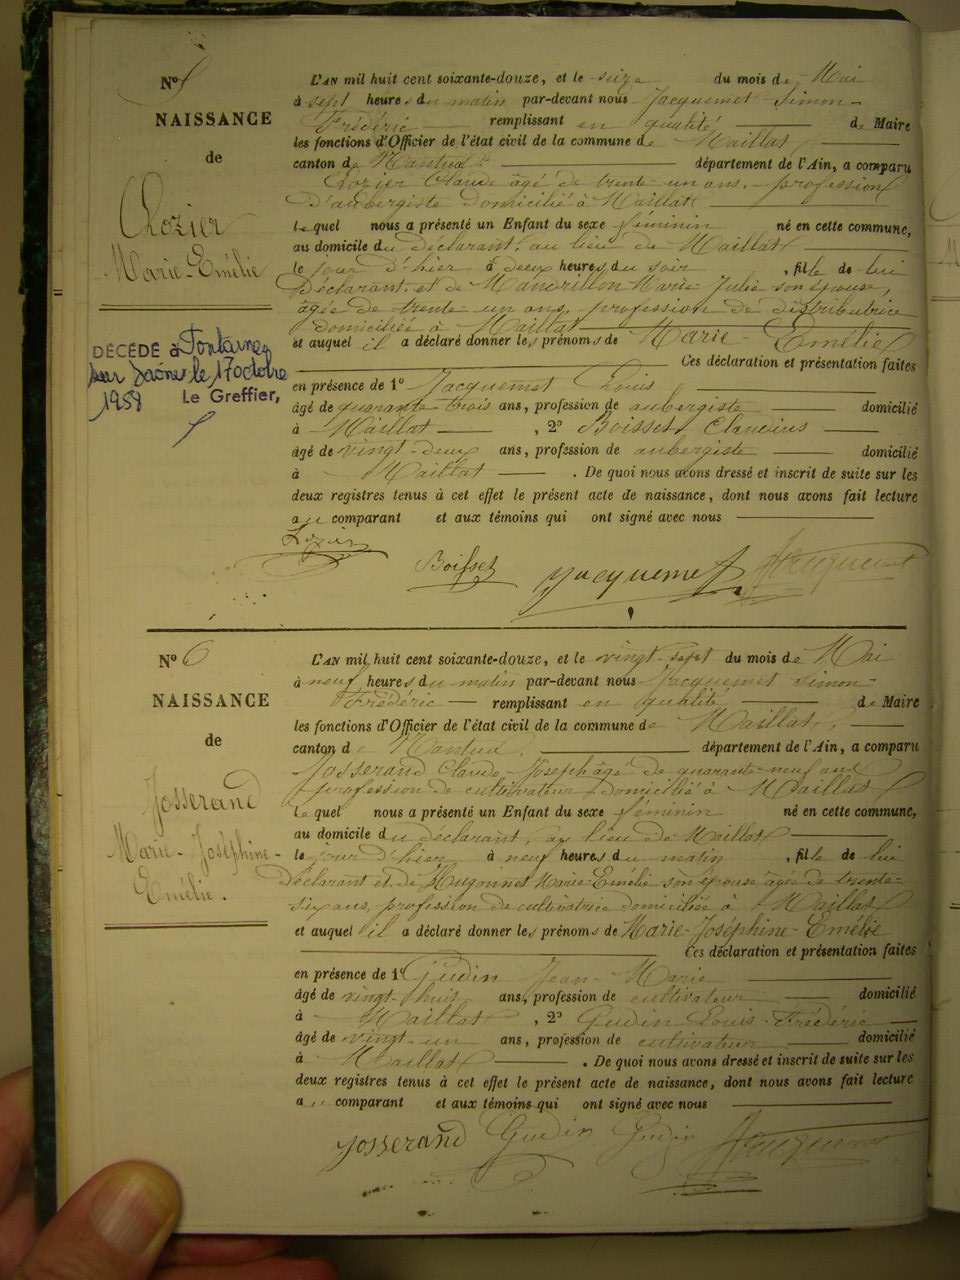 N° 5
NAISSANCE
de
Lozier
Marie-Emélie
DÉCÉDÉ à Fontaines
sur Saône le 17 octobre
1959 Le Greffier,
L'AN mil huit cent soixante-douze, et le seize du mois de Mai
à sept heures du matin par-devant nous Jacquemet Simon-
Frédéric remplissant en qualité de Maire
les fonctions d'Officier de l'état civil de la commune de Maillat
canton de Nantua département de l'Ain, a comparu
Lozier Claude âgé de trente-un ans, profession
d'aubergiste domicilié à Maillat
lequel nous a présenté un Enfant du sexe féminin né en cette commune,
au domicile du déclarant, au lieu de Maillat
le jour d'hier à deux heures du soir, fille de lui
Déclarant et de Mandrillon Marie Julie son épouse,
âgée de trente-un ans, profession de distributrice
domiciliée à Maillat
et auquel il a déclaré donner les prénoms de Marie-Emélie
Ces déclaration et présentation faites
en présence de 1° Jacquemet Louis
âgé de quarante-trois ans, profession de aubergiste domicilié
à Maillat, 2° Boisset Claudius
âgé de vingt-deux ans, profession de aubergiste domicilié
à Maillat. De quoi nous avons dressé et inscrit de suite sur les
deux registres tenus à cet effet le présent acte de naissance, dont nous avons fait lecture
au comparant et aux témoins qui ont signé avec nous
Lozier
Boisset Jacquemet Jacquemet
N° 6
NAISSANCE
de
Josserand
Marie-Joséphine-
Emélie.
L'AN mil huit cent soixante-douze, et le vingt-sept du mois de Mai
à neuf heures du matin par-devant nous Jacquemet Simon-
Frédéric remplissant en qualité de Maire
les fonctions d'Officier de l'état civil de la commune de Maillat,
canton de Nantua, département de l'Ain, a comparu
Josserand Claude-Joseph âgé de quarante-neuf ans
profession de cultivateur domicilié à Maillat
lequel nous a présenté un Enfant du sexe féminin né en cette commune,
au domicile du déclarant, au lieu de Maillat
le jour d'hier à neuf heures du matin, fille de lui
déclarant et de Hugonnet Marie-Emélie son épouse âgée de trente-
six ans, profession de cultivatrice domiciliée à Maillat
et auquel il a déclaré donner les prénoms de Marie-Joséphine-Emélie
Ces déclaration et présentation faites
en présence de 1° Gudin Jean-Marie
âgé de vingt-huit ans, profession de cultivateur domicilié
à Maillat, 2° Gudin Louis-Frédéric
âgé de vingt-un ans, profession de cultivateur domicilié
à Maillat. De quoi nous avons dressé et inscrit de suite sur les
deux registres tenus à cet effet le présent acte de naissance, dont nous avons fait lecture
au comparant et aux témoins qui ont signé avec nous
Josserand Gudin Gudin Jacquemet